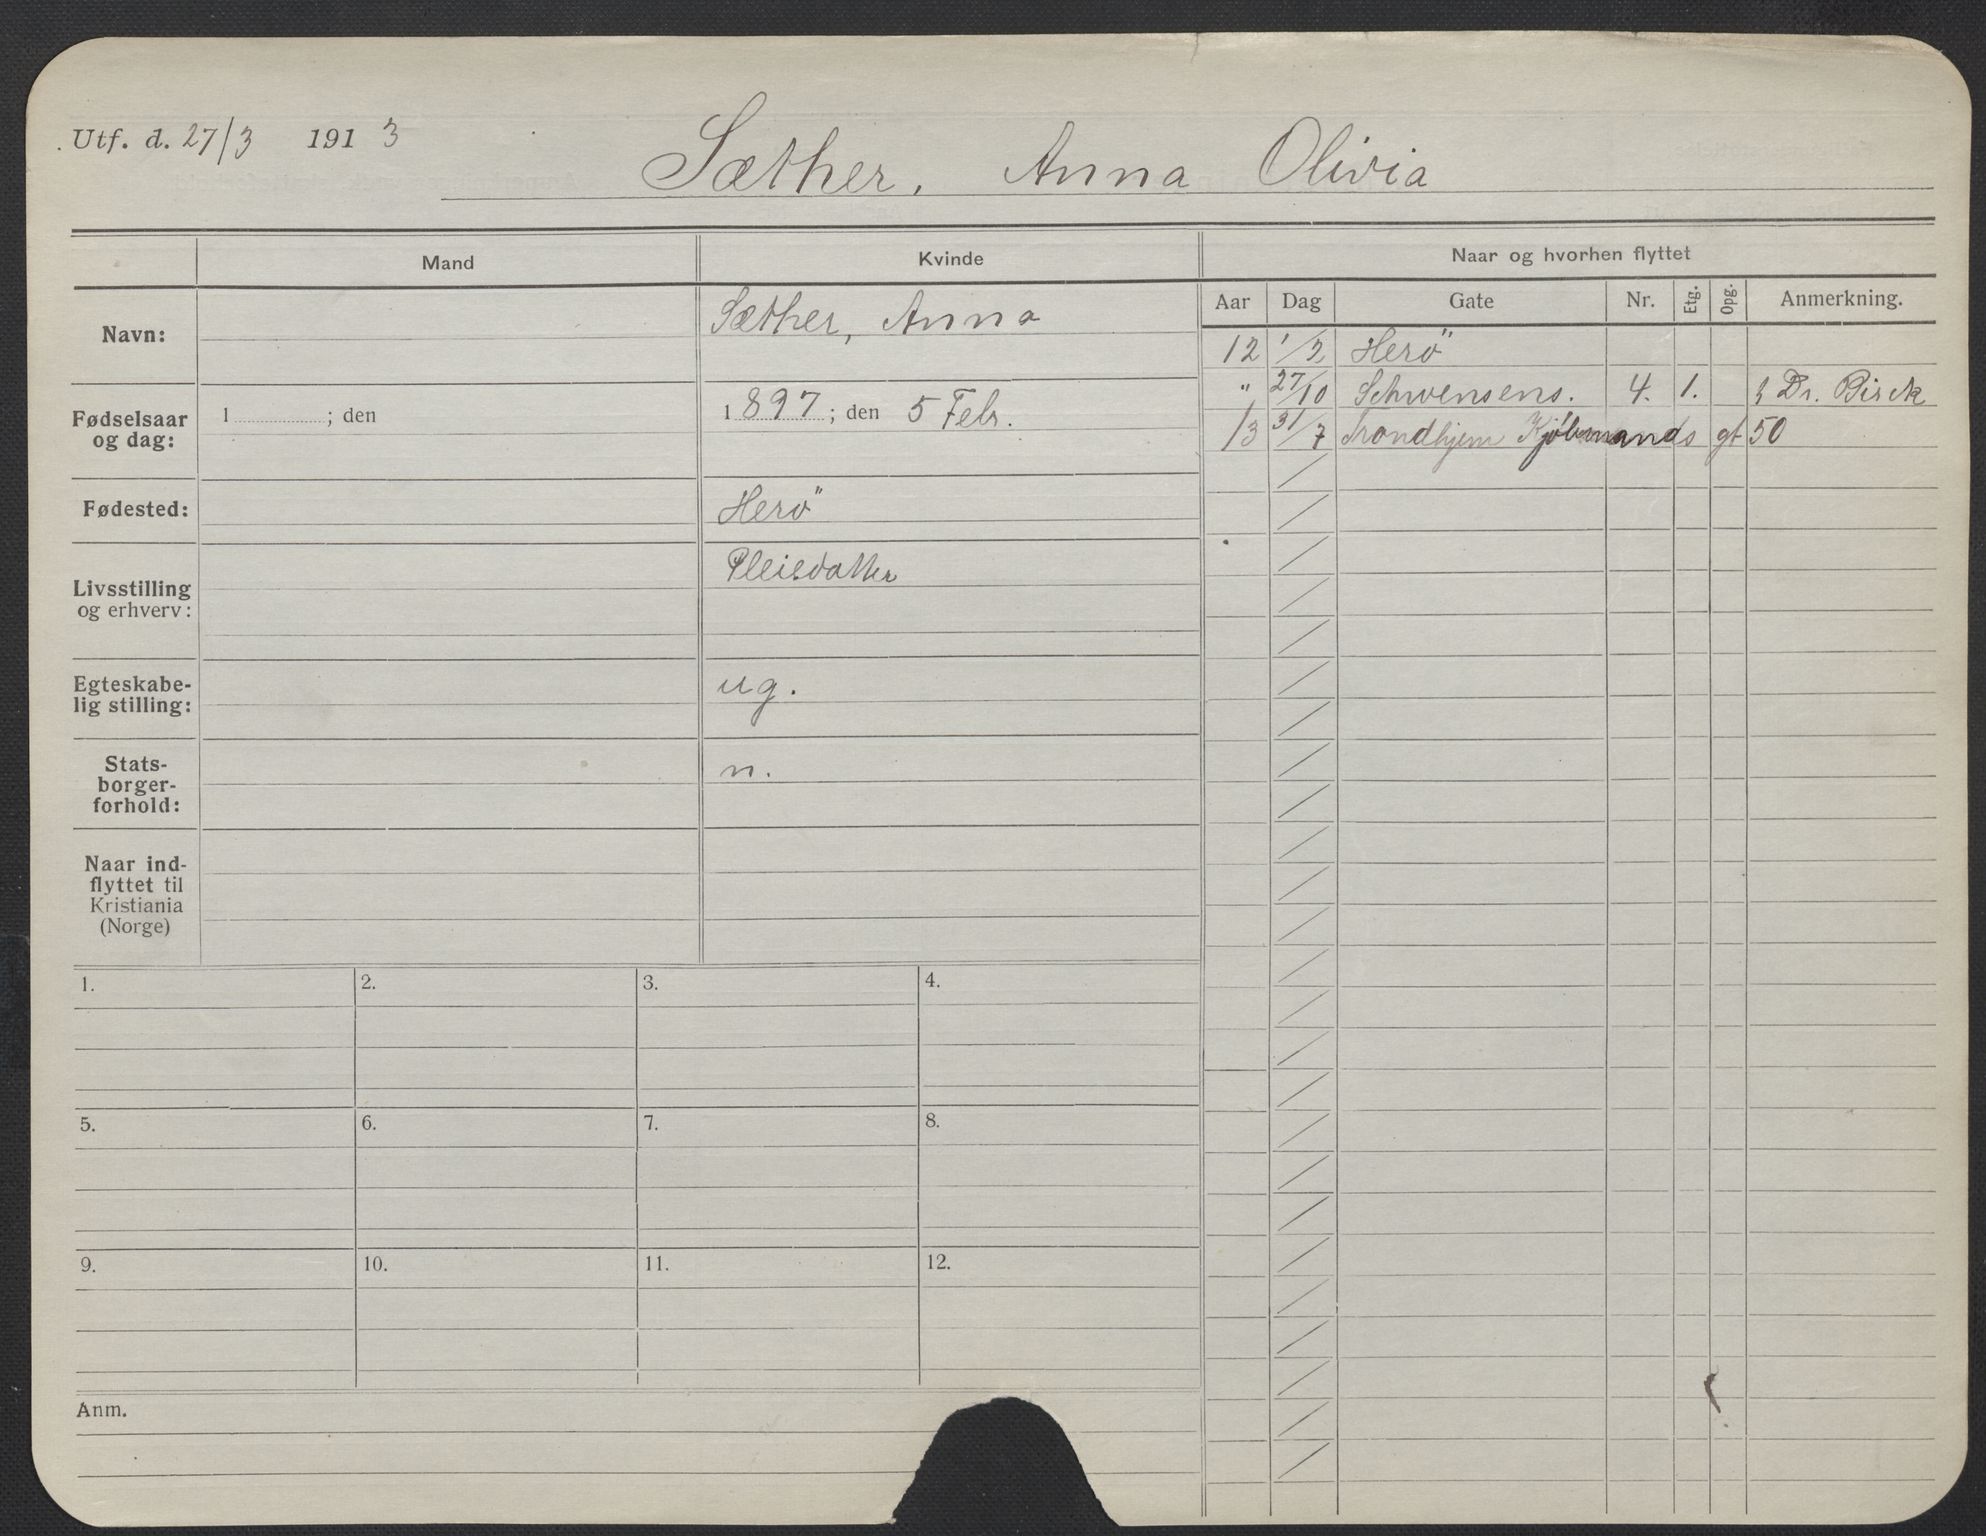 Utf. d. 27/3 1913
Sæther, Anna Olivia
Mand
Kvinde
Naar og hvorhen flyttet
Aar Dag Gate Nr. Etg. Opg. Anmerkning.
Navn:
Sæther, Anna
12 1/2 Herö
" 27/10 Schwensens. 4. 1. Dr. Birck
13 31/7 Trondhjem Kjöbmands gt 50
Fødselsaar
og dag:
1 ; den
1897 ; den 5 Febr.
Fødested:
Herö
Livsstilling
og erhverv:
Pleiedatter
Egteskabe-
lig stilling:
ug.
Stats-
borger-
forhold:
n.
Naar ind-
flyttet til
Kristiania
(Norge)
1. 2. 3. 4.
5. 6. 7. 8.
9. 10. 11. 12.
Anm.